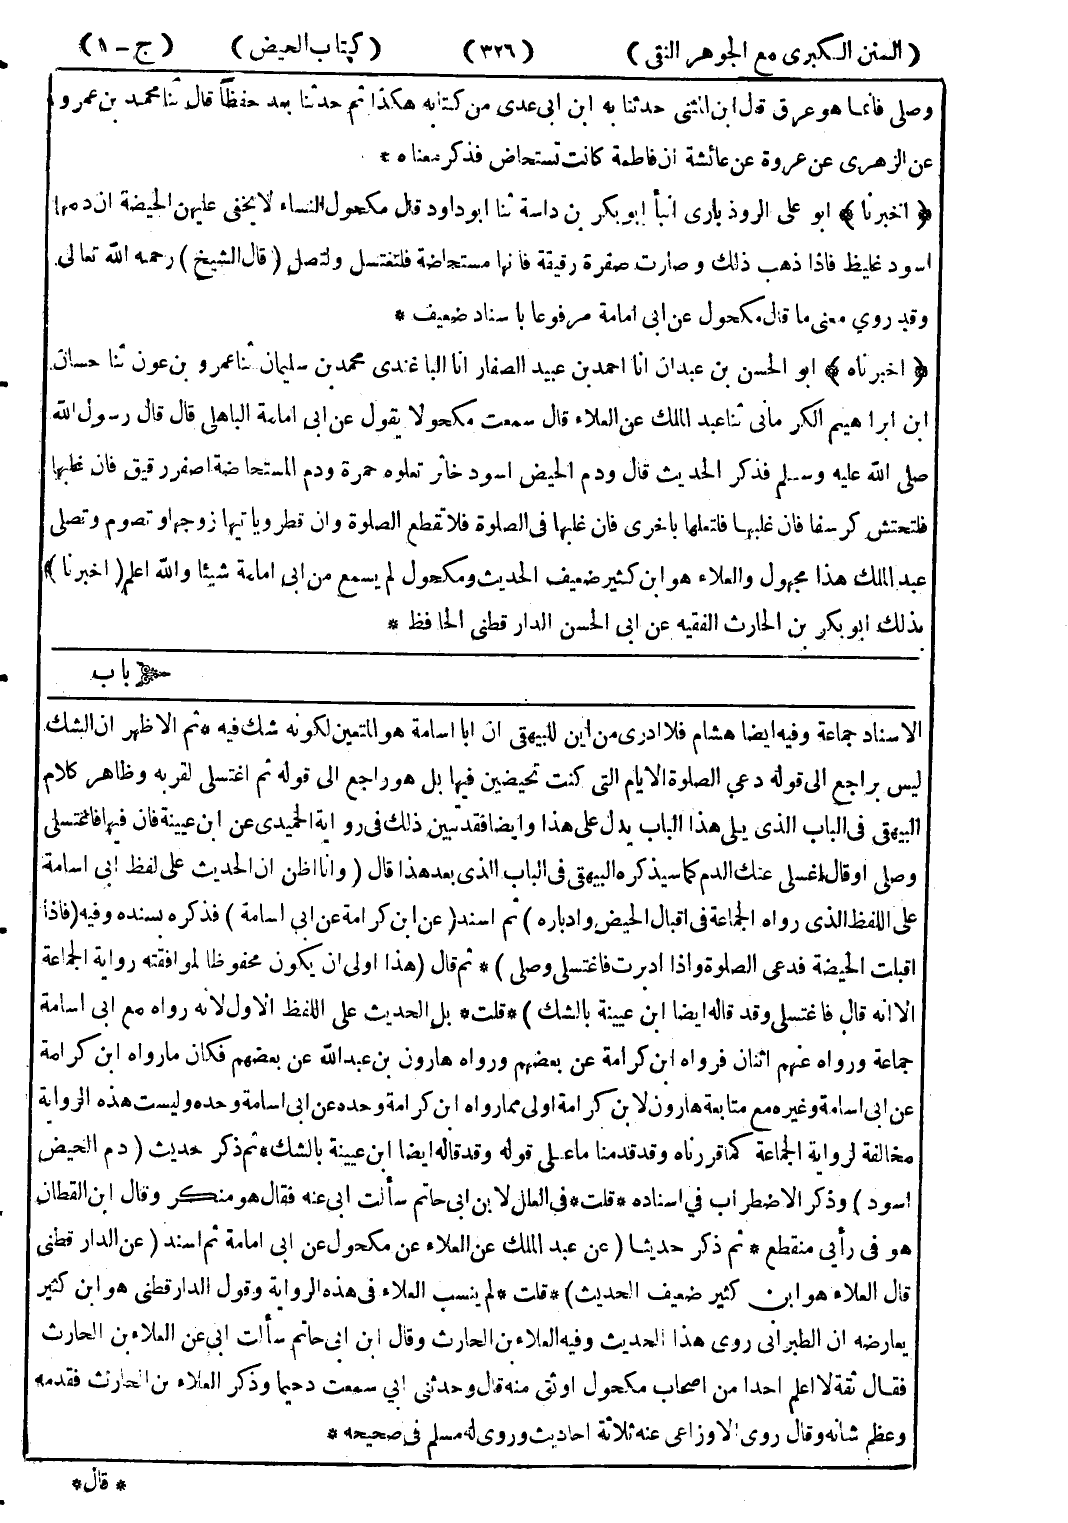 ( السنن الكبرى مع الجوهر النقى ) ( ٣٢٦ ) ( كتاب الحيض ) ( ج - ١ )
وصلى فانما هو عرق قال ابن المثنى حدثنا به ابن ابى عدى من كتابه هكذا ثم حدثنا بعد حفظاً قال ثنا محمد بن عمرو
عن الزهرى عن عروة عن عائشة ان فاطمة كانت تستحاض فذكر معناه *
﴿ اخبرنا ﴾ ابو على الروذبارى انبأ ابو بكر بن داسة ثنا ابو داود قال مكحول النساء لا يخفى عليهن الحيضة ان دمها
اسود غليظ فاذا ذهب ذلك وصارت صفرة رقيقة فانها مستحاضة فلتغتسل ولتصل ( قال الشيخ ) رحمه الله تعالى
وقد روي معنى ما قال مكحول عن ابى امامة مرفوعا باسناد ضعيف *
﴿ اخبرناه ﴾ ابو الحسن بن عبدان انا احمد بن عبيد الصفار انا الباغندى محمد بن سليمان ثنا عمرو بن عون ثنا حسان
ابن ابراهيم الكرمانى ثنا عبد الملك عن العلاء قال سمعت مكحولا يقول عن ابى امامة الباهلى قال قال رسول الله
صلى الله عليه وسلم فذكر الحديث قال ودم الحيض اسود خاثر تعلوه حمرة ودم المستحاضة اصفر رقيق فان غلبها
فلتحتش كرسفا فان غلبها فلتعلها باخرى فان غلبها فى الصلوة فلا تقطع الصلوة وان قطر وياتيها زوجها وتصوم وتصلى
عبد الملك هذا مجهول والعلاء هو ابن كثير ضعيف الحديث ومكحول لم يسمع من ابى امامة شيئا والله اعلم ( اخبرنا )
بذلك ابو بكر بن الحارث الفقيه عن ابى الحسن الدار قطنى الحافظ *
باب
الاسناد جماعة وفيه ايضا هشام فلا ادرى من اين للبيهقى ان ابا اسامة هو المتعين لكونه شك فيه * ثم الاظهر ان الشك
ليس براجع الى قوله دعي الصلوة الايام التى كنت تحيضين فيها بل هو راجع الى قوله ثم اغتسلى لقربه وظاهر كلام
البيهقى فى الباب الذى يلى هذا الباب يدل على هذا وايضا فقد تبين ذلك فى رواية الحميدى عن ابن عيينة فان فيها فاغتسلى
وصلى او قال اغسلى عنك الدم كما سيذكره البيهقى فى الباب الذى بعد هذا قال ( وانا اظن ان الحديث على لفظ ابى اسامة
على اللفظ الذى رواه الجماعة فى اقبال الحيض وادباره ) ثم اسند ( عن ابن كرامة عن ابى اسامة ) فذكره بسنده وفيه ( فاذا
اقبلت الحيضة فدعى الصلوة واذا ادبرت فاغتسلى وصلى ) * ثم قال ( هذا اولى ان يكون محفوظا لموافقته رواية الجماعة
الا انه قال فاغتسلى وقد قاله ايضا ابن عيينة بالشك ) * قلت * بل الحديث على اللفظ الاول لانه رواه مع ابى اسامة
جماعة ورواه عنهم اثنان فرواه ابن كرامة عن بعضهم ورواه هارون بن عبد الله عن بعضهم فكان ما رواه ابن كرامة
عن ابى اسامة وغيره مع متابعة هارون لابن كرامة اولى مما رواه ابن كرامة وحده عن ابى اسامة وحده وليست هذه الرواية
مخالفة لرواية الجماعة كما قررناه وقد قدمنا ما على قوله وقد قاله ايضا ابن عيينة بالشك * ثم ذكر حديث ( دم الحيض
اسود ) وذكر الاضطراب في اسناده * قلت * فى العلل لابن ابى حاتم سألت ابى عنه فقال هو منكر وقال ابن القطان
هو فى رأيى منقطع * ثم ذكر حديثا ( عن عبد الملك عن العلاء عن مكحول عن ابى امامة ثم اسند ( عن الدار قطنى
قال العلاء هو ابن كثير ضعيف الحديث ) * قلت * لم ينسب العلاء فى هذه الرواية وقول الدار قطنى هو ابن كثير
يعارضه ان الطبرانى روى هذا الحديث وفيه العلاء بن الحارث وقال ابن ابى حاتم سألت ابى عن العلاء بن الحارث
فقال ثقة لا اعلم احدا من اصحاب مكحول اوثق منه قال وحدثنى ابي سمعت دحيما وذكر العلاء بن الحارث فقدمه
وعظم شانه وقال روى الاوزاعى عنه ثلاثة احاديث وروى له مسلم فى صحيحه *
* قال *